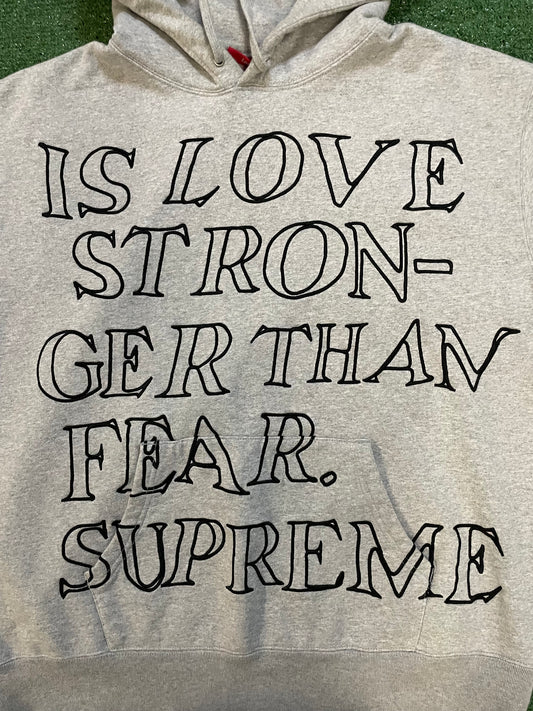 IS LOVE
STRON-
GER THAN
FEAR.
SUPREME